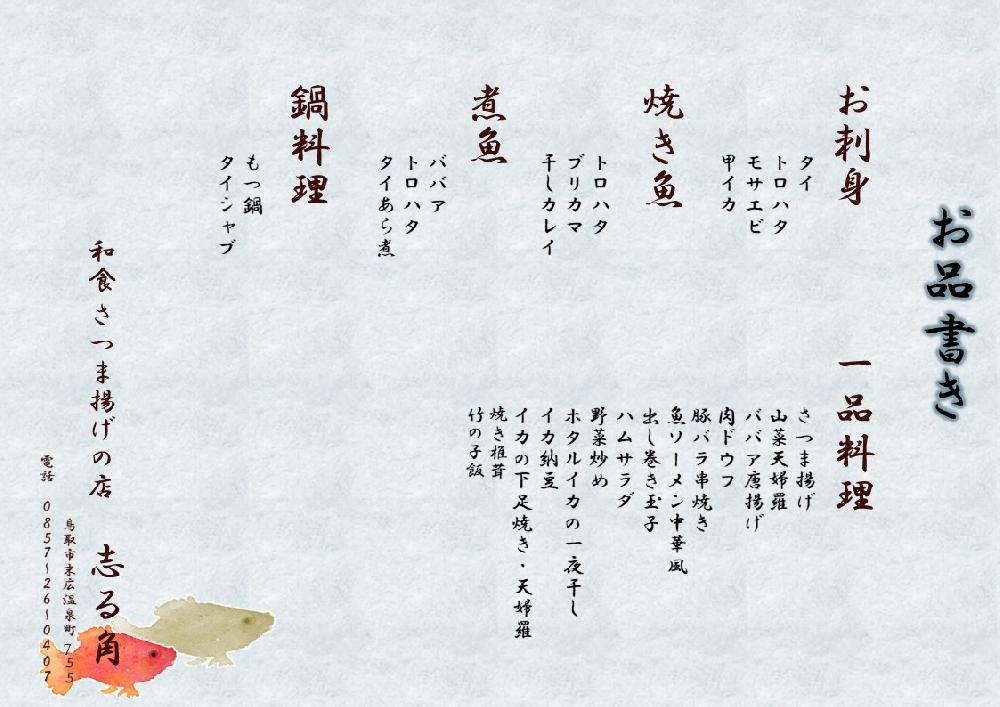 お品書き
お刺身
タイ
トロハタ
モサエビ
甲イカ
焼き魚
トロハタ
ブリカマ
干しカレイ
煮魚
ババア
トロハタ
タイあら煮
鍋料理
もつ鍋
タイシャブ
一品料理
さつま揚げ
山菜天婦羅
ババア唐揚げ
肉ドウフ
豚バラ串焼き
魚ソーメン中華風
出し巻き玉子
ハムサラダ
野菜炒め
ホタルイカの一夜干し
イカ納豆
イカの下足焼き・天婦羅
焼き椎茸
竹の子飯
和食さつま揚げの店 志る角
鳥取市末広温泉町755
電話 0857-26-0407